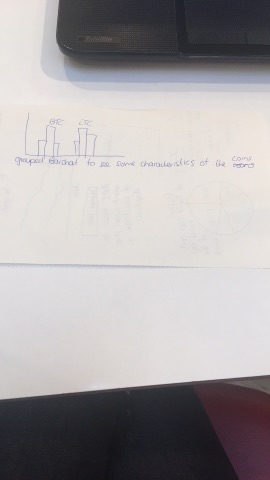 BTC LTC
grouped barchart to see some characteristics of the coins